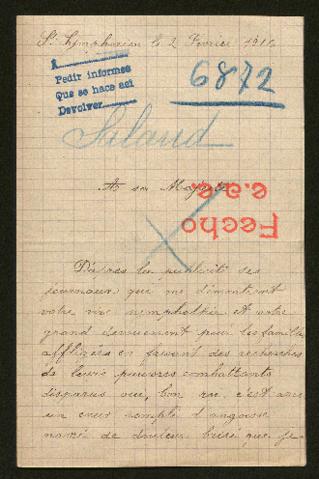 St Symphorien le 2 Fevrier 1916
A
Pedir informes
Que se hace asi
Devolver
6872
Salaud
A sa Majesté
Fecho
e.a.e.
D'après la publicité des
journaux qui me démontrent
votre vive symphathie et votre
grand devouement pour les familles
affligées en faisant des recherches
de leurs pauvres combattants
disparus oui, bon roi, c'est avec
un cœur remplé d'angoisse
navré de douleur brisé que je